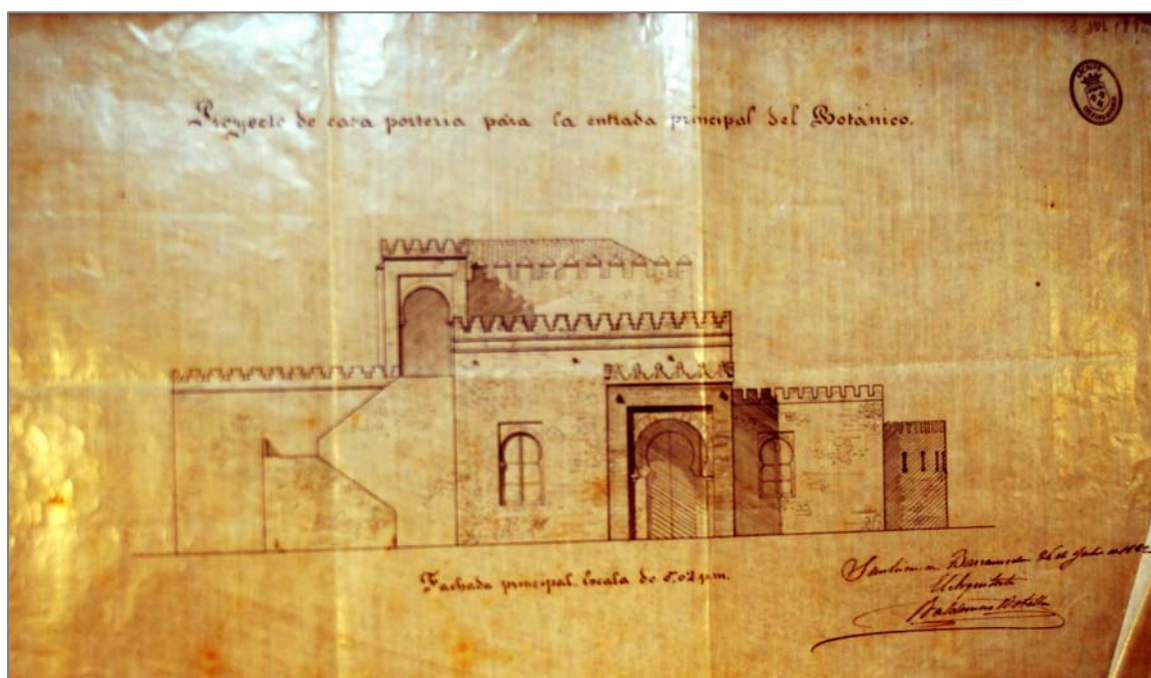 Proyecto de casa portería para la entrada principal del Botánico.
Fachada principal. Escala de 0,02 p.m.
Sanlúcar de Barrameda 26 de Julio de 1880
El Arquitecto
Baldomero Botella